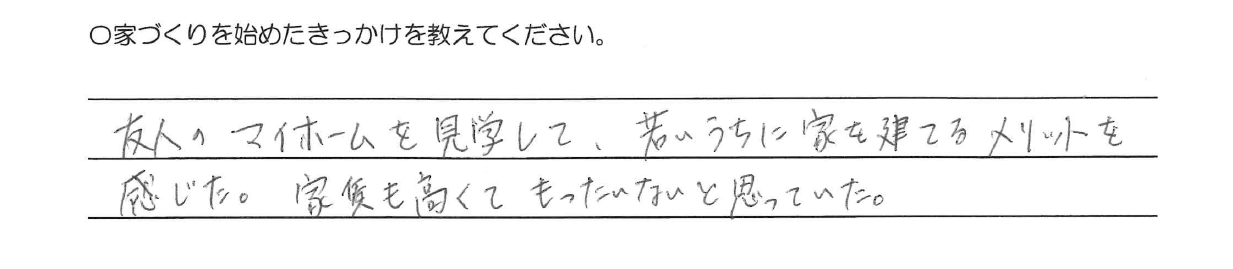 〇家づくりを始めたきっかけを教えてください。
友人のマイホームを見学して、若いうちに家を建てるメリットを
感じた。家賃も高くてもったいないと思っていた。